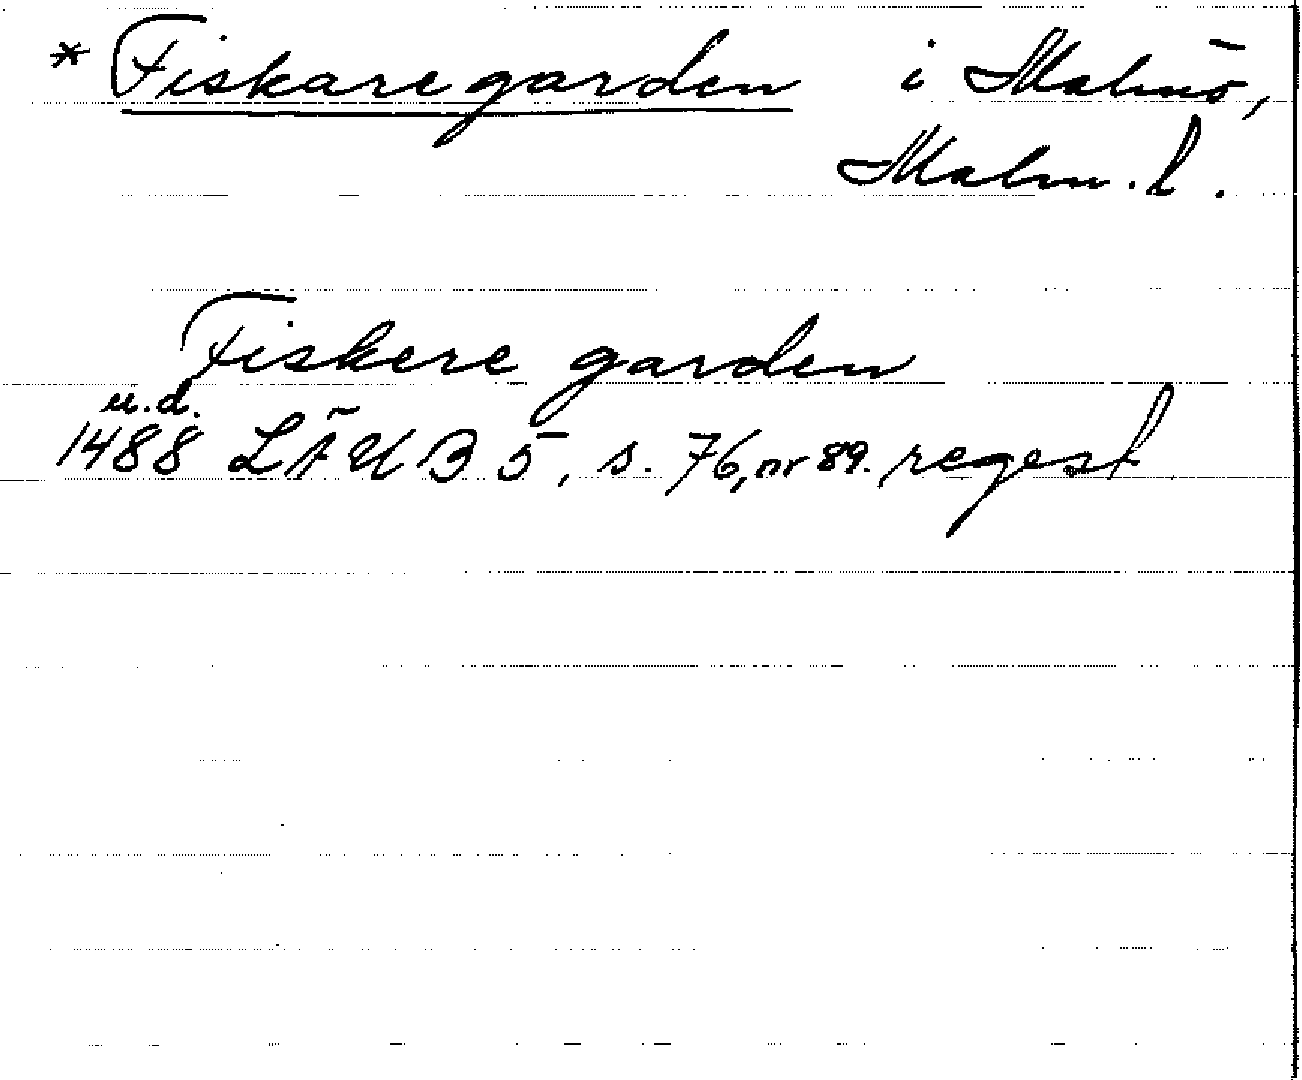 * Fiskaregarden i Malmö,
Malm. l.
Fiskere garden
u.d.
1488 LÄUB 5, s. 76, nr 89. regest